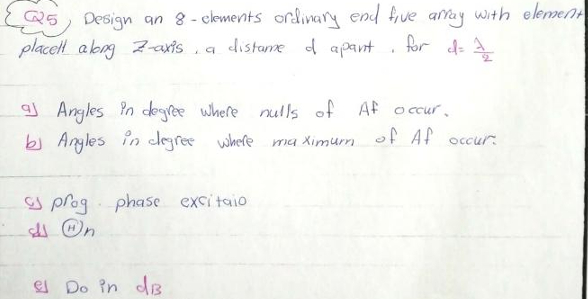 Q5) Design an 8-elments ordinary end five array with element
placell along Z-axis, a distame d apart, for d= λ/2
a) Angles in degree where nulls of Af occur.
b) Angles in degree where maximum of Af occur.
c) prog. phase excitaio
d) Ⓗn
e) Do in dB